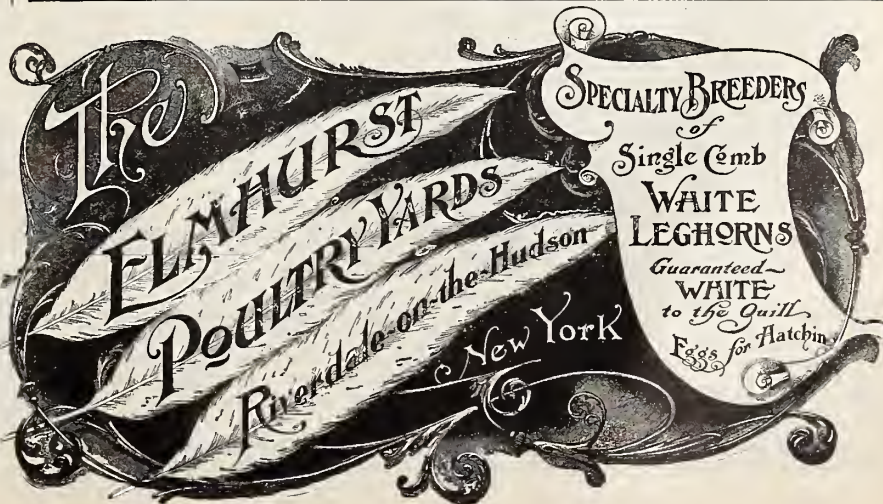 The
ELMHURST
POULTRY YARDS
Riverdale-on-the-Hudson
New York
SPECIALTY BREEDERS
of
Single Comb
WHITE
LEGHORNS
Guaranteed~
WHITE
to the Quill
Eggs for Hatchin